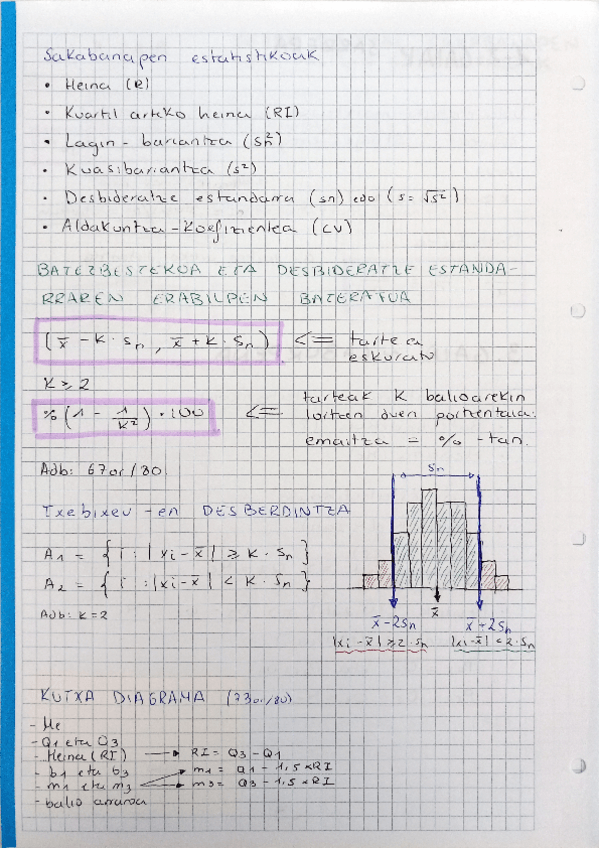 Sakabanapen estatistikoak
• Heina (R)
• Kuartil arteko heina (RI)
• Lagin - bariantza (Sn²)
• Kuasibariantza (s²)
• Desbideratze estandarra (sn) edo (s = √s²)
• Aldakuntza - Koefizientea (CV)
BATEZBESTEKOA ETA DESBIDERATZE ESTANDA-
RRAREN ERABILPEN BATERATUA
(x̄ - K · Sn, x̄ + K · Sn) <= tartea
eskuratu
K ≥ 2
% (1 - 1/K²) · 100 <= tarteak K balioarekin
lortzen duen portzentaia:
emaitza = % -tan.
Adb: 67or/80.
Txebixev -en DESBERDINTZA
Sn
A1 = { i : |xi - x̄| ≥ K · Sn }
A2 = { i : |xi - x̄| < K · Sn }
Adb: K=2
x̄
x̄ - 2Sn x̄ + 2Sn
|xi - x̄| ≥ 2 · Sn |xi - x̄| < 2 · Sn
KUTXA DIAGRAMA (73or/80)
- Me
- Q1 eta Q3
- Heina (RI) → RI = Q3 - Q1
- b1 eta b3 m1 = Q1 - 1,5 × RI
- m1 eta m3 m3 = Q3 - 1,5 × RI
- balio arraroa